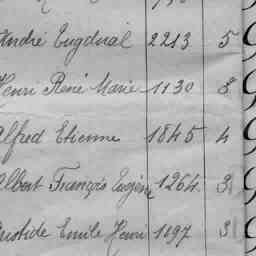 André Tugdual 2213 5
Henri René Marie 1130 3
Alfred Etienne 1845 4
Albert François Eugène 1264 3
Aristide Emile Henri 1197 3